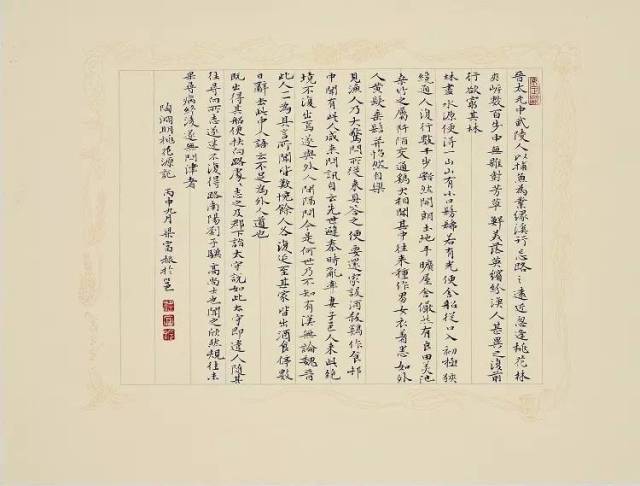 晉太元中武陵人以捕魚為業緣溪行忘路之遠近忽逢桃花林
夾岸數百步中無雜樹芳草鮮美落英繽紛漁人甚異之復前
行欲窮其林
林盡水源便得一山山有小口髣髴若有光便舍船從口入初極狹
纔通人復行數十步豁然開朗土地平曠屋舍儼然有良田美池
桑竹之屬阡陌交通鷄犬相聞其中往來種作男女衣著悉如外
人黃髮垂髫並怡然自樂
見漁人乃大驚問所從來具答之便要還家設酒殺鷄作食邨
中聞有此人咸來問訊自云先世避秦時亂率妻子邑人來此絕
境不復出焉遂與外人間隔問今是何世乃不知有漢無論魏晉
此人一一為具言所聞皆歎惋餘人各復延至其家皆出酒食停數
日辭去此中人語云不足為外人道也
既出得其船便扶向路處處志之及郡下詣太守說如此太守即遣人隨其
往尋向所志遂迷不復得路南陽劉子驥高尚士也聞之欣然規往未
果尋病終後遂無問津者
陶淵明桃花源記 丙申九月梁富旅於邕